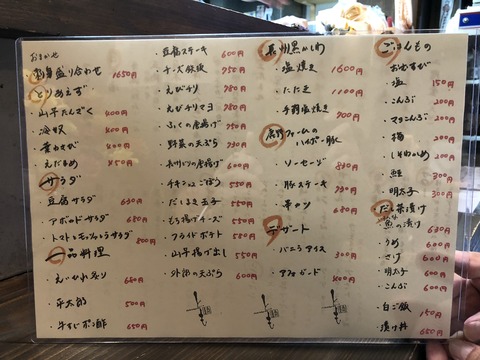 おまかせ
刺身盛り合わせ 1650円
とりあえず
・山芋たんざく 400円
・冷奴 400円
400円
・えだまめ 450円
サラダ
・豆腐サラダ 630円
・アボカドサラダ 680円
・トマトモッツァレラサラダ 800円
一品料理
・えいひれ炙り 650円
・平太郎 500円
・牛すじポン酢 650円
・豆腐ステーキ 600円
・チーズ鉄板 950円
・えびチリ 980円
・えびチリマヨ 980円
・ふぐの唐揚げ 950円
・野菜の天ぷら
・チキンとごぼう 550円
・だし巻き玉子 550円
・もち揚げチーズ 550円
・フライドポテト 580円
・山芋揚げ出し 550円
の天ぷら 600円
長州黒かしわ
・塩焼き 1600円
・たたき 1100円
・手羽塩焼き
ファームの
ハイポー豚
・ソーセージ
・豚ステーキ
680円
デザート
・バニラアイス 300円
400円
ごはんもの
おむすび
・塩 150円
・こんぶ 200円
・マヨこんぶ 200円
・梅 200円
・しそわかめ 200円
・鮭 300円
・明太子 300円
だし茶漬け
・魚の漬け 630円
・うめ 600円
・さけ 600円
・明太子 600円
・こんぶ 600円
・白ご飯 150円
・漬け丼 650円